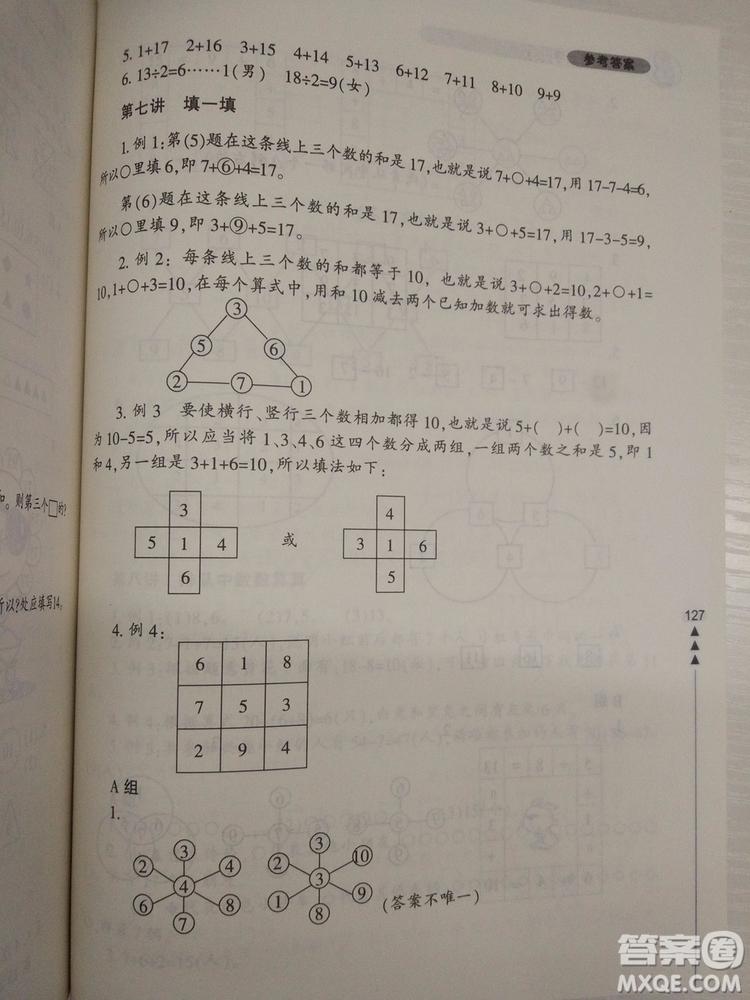 参考答案
5. 1+17 2+16 3+15 4+14 5+13 6+12 7+11 8+10 9+9
6. 13÷2=6……1(男) 18÷2=9(女)
第七讲 填一填
1. 例1:第(5)题在这条线上三个数的和是17,也就是说7+○+4=17,用17-7-4=6,
所以○里填6,即7+⑥+4=17。
第(6)题在这条线上三个数的和是17,也就是说3+○+5=17,用17-3-5=9,
所以○里填9,即3+⑨+5=17。
2. 例2:每条线上三个数的和都等于10,也就是说3+○+2=10,2+○+1=
10,1+○+3=10,在每个算式中,用和10减去两个已知加数就可求出得数。
③
⑤ ⑥
② ⑦ ①
3. 例3 要使横行、竖行三个数相加都得10,也就是说5+( )+( )=10,因
为10-5=5,所以应当将1、3、4、6这四个数分成两组,一组两个数之和是5,即1
和4,另一组是3+1+6=10,所以填法如下:
3 4
5 1 4 或 3 1 6
6 5
4. 例4:
6 1 8
7 5 3
2 9 4
A组
1.
③ ③
② ④ ② ⑩
④ ③
⑥ ⑧ ① ⑨
⑦ ⑧
(答案不唯一)
和。则第三个□的?
所以?处应填写14。
127
答案圈
MXQE.COM